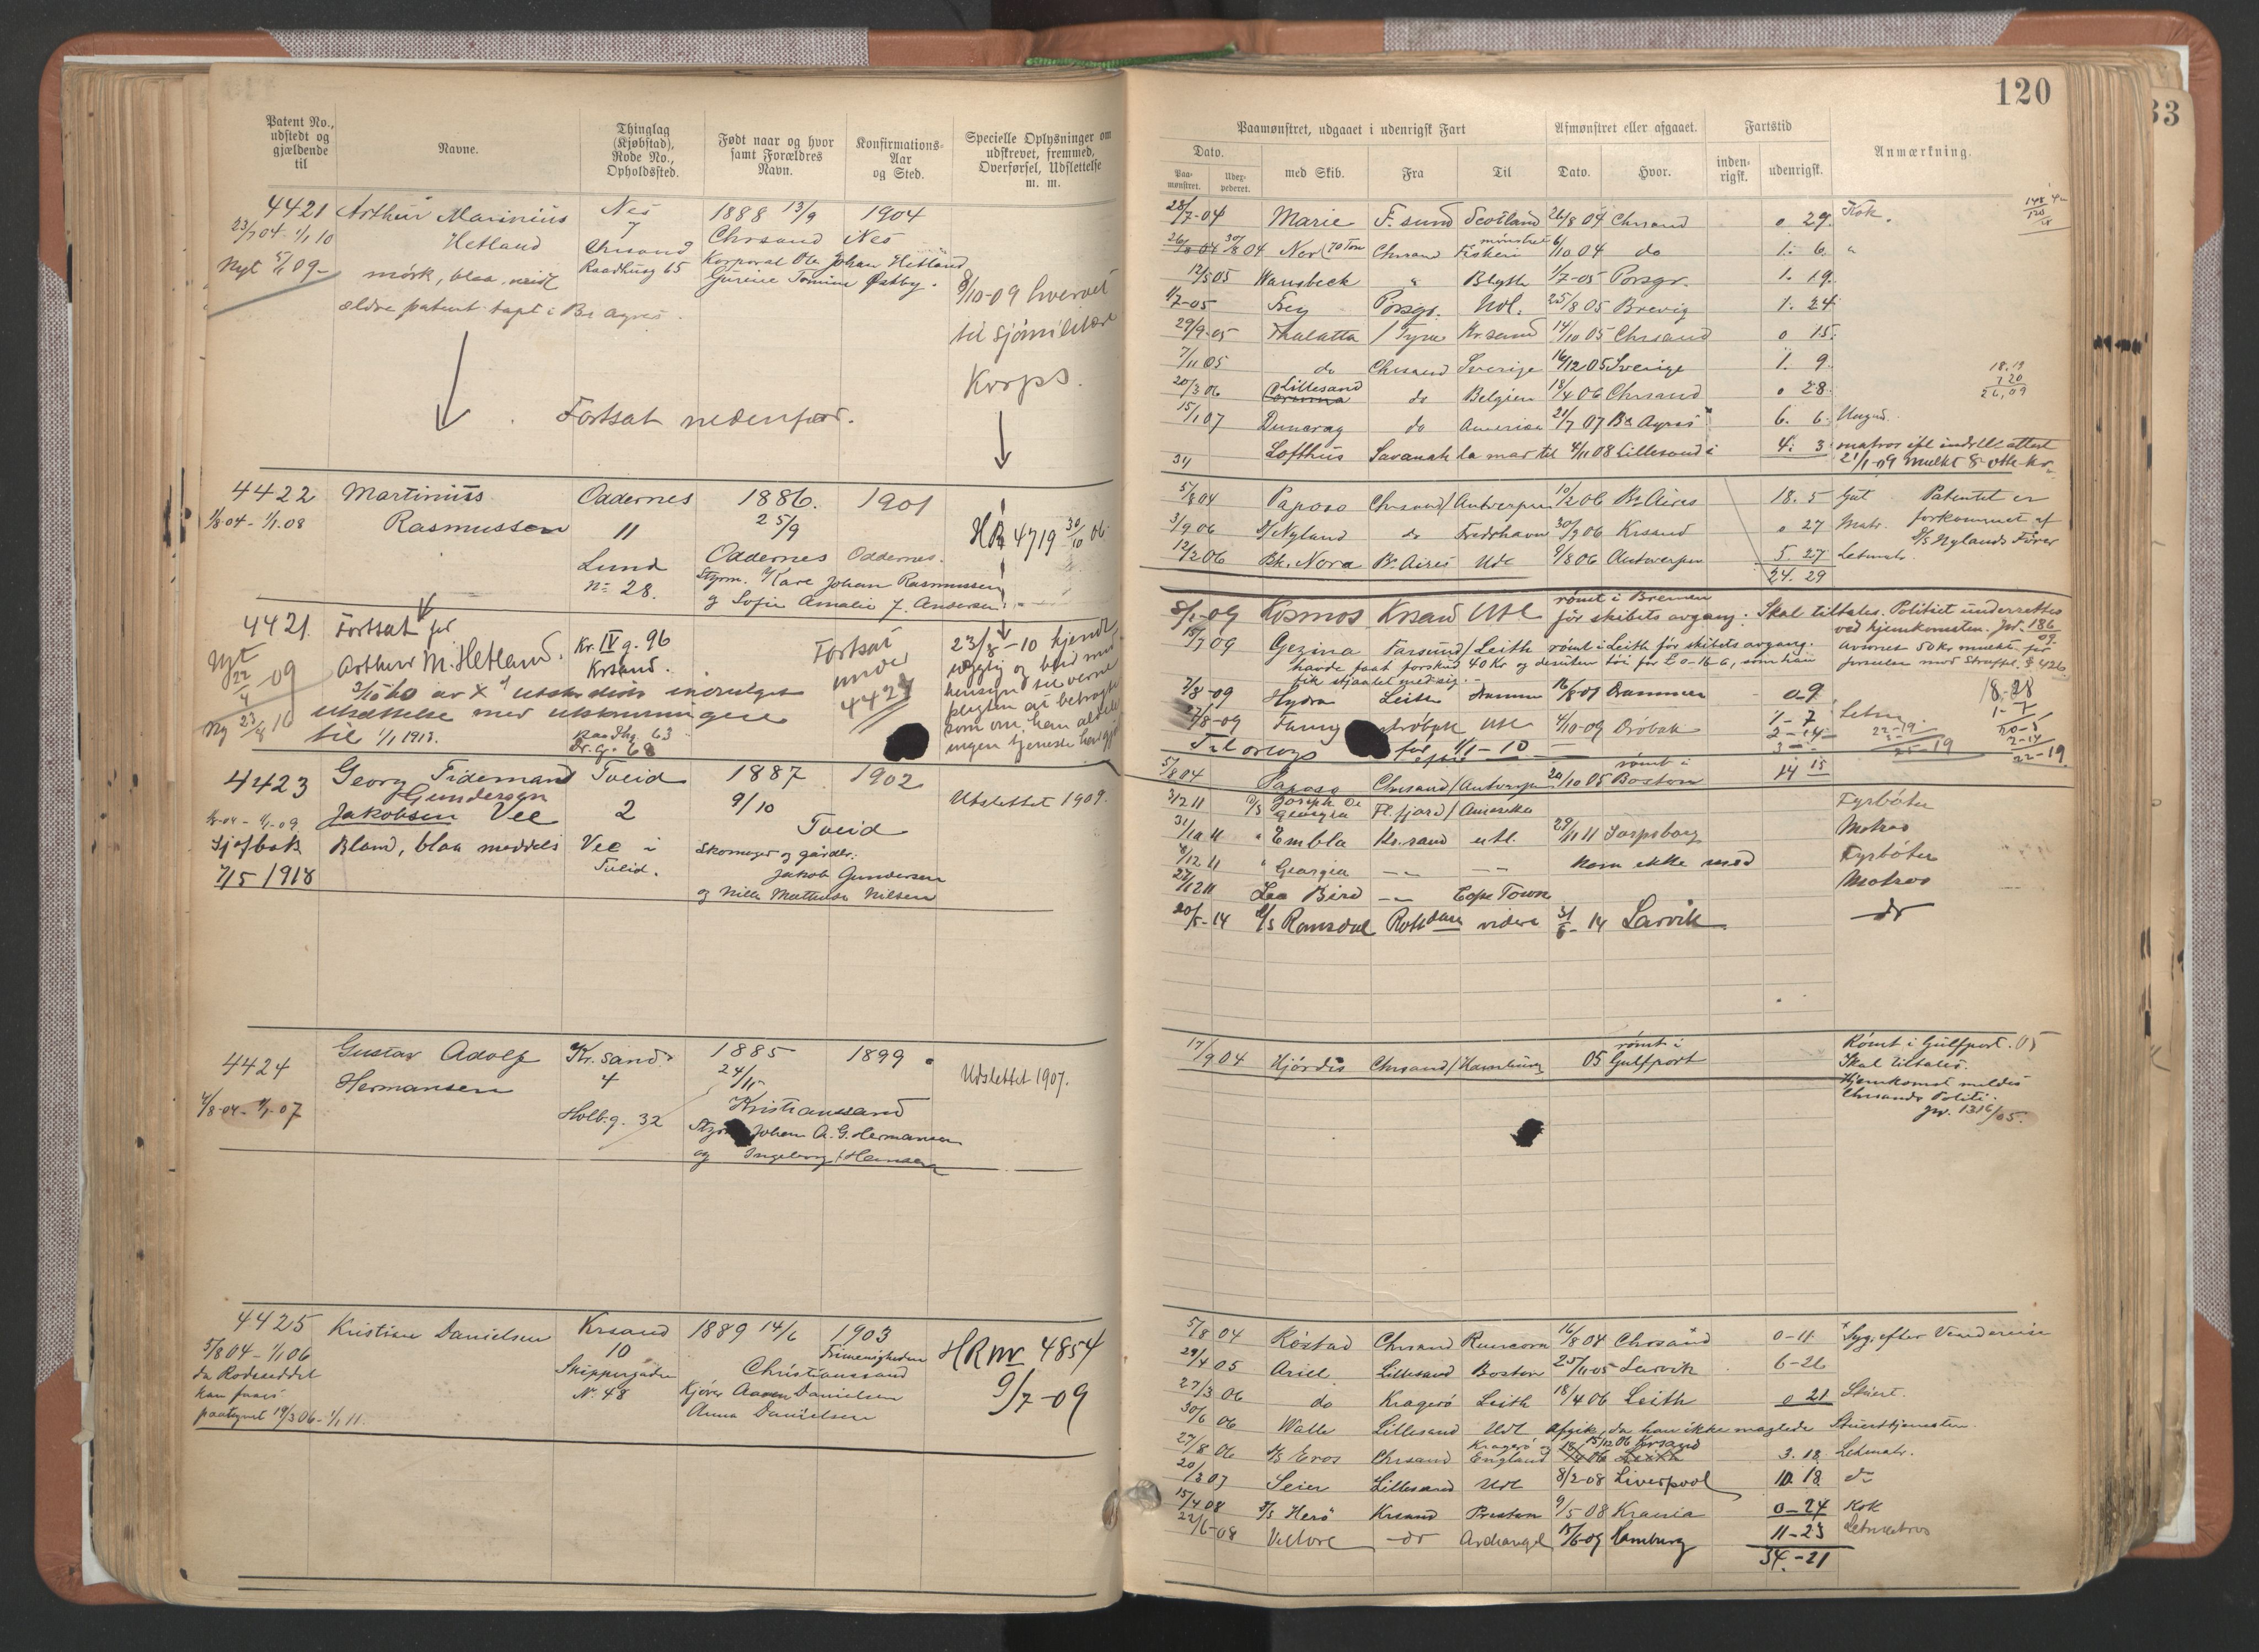 120
33
Patent No., udstedt og gjældende til
Navne.
Thinglag (Kjøbstad), Rode No., Opholdssted.
Født naar og hvor samt Forældres Navn.
Konfirmations-Aar og Sted.
Specielle Oplysninger om udskrevet, fremmed, Overførsel, Udslettelse m. m.
Paamønstret, udgaaet i udenrigsk Fart
Afmønstret eller afgaaet.
Fartstid
Anmærkning.
Dato.
Paamønstret.
med Skib.
Fra
Til
Dato.
Hvor.
inden-rigsk.
udenrigsk.
4421 Arthur Marinius Nes 1888 13/9 1904
Hetland 7 Chrsand Nes
23/7 04 - 1/1 10 Chrsand Korporal Ole Johan Hetland
Nyt 5/1 09 - mørk, blaa Raadhusg 65
ældre patent tapt i Bs Ayres.
8/10-09 hvervet
til sjømilitære
Korps.
Fortsat nedenfor.
28/7-04 Marie F. sund Scotland 26/8 04 Chrsand 0 29. Kok.
30/8 04 Nor (70 Ton Chrsand Fiskeri 6/10 04 do 1. 6. "
12/5 05 Wansbeck " Blyth 1/7-05 Porsgr. 1. 19.
1/7-05 Frey Porsgr. Udl. 25/8 05 Brevig 1. 24
29/9-05 Thalatta / Tyne Kr.sand 14/10 05 Chrsand 0 15.
7/11 05 do Chrsand Sverige 16/12 05 Sverige 1. 9.
Lillesand
20/3 06 do Belgien 18/4 06 Chrsand 0 28.
15/1 07 Duncrag do Amerika 21/7 07 Bs Ayres 6. 6. Ungmd.
Lofthus Savanah la mar til 4/11 08 Lillesand 4. 3. matros
21/1-09 mulkt 8 - otte Kr.
4422 Martinius Oddernes 1886. 1901
1/8 04 - 1/1.08 Rasmussen 11 25/9
HR 4719 30/10 06
Lund Oddernes Oddernes.
No 28. Styrm. Kare Johan Rasmussen
og Sofie Amalie f. Andersen
5/8 04 Paposo Chrsand / Antwerpen 10/2 06 Bs Aires 18. 5 Gut Patentet er
3/9 06 Nyland do Fredrhavn 30/9 06 Krsand 0 27 Matr. forkommet af
D/S Nylands Fører
12/2 06 Bk. Nora Bs Aires Udl 9/8 06 Antwerpen 5. 27 Letmatr.
24. 29
4421. Fortsat for Kr. IV g. 96
Nyt 22/4 - 09 Arthur M. Hetland. Krsand.
Fortsat under 4427
23/8 - 10 kjendt
udsættelse med utskrivningen
til 1/1 1913. Raadhg. 63
Dr. g. 68
Kosmos Krsand Utl rømt i Bremen
før skibets avgang. Skal tiltales. Politiet underrettes
ved hjemkomsten. Jnr. 186/09.
15/7 09 Gezina Farsund / Leith rømt i Leith før skibets avgang.
havde faat forskud 40 Kr og desuten tøi for £ 0-16-6, som han
fik stjaalet med sig.
7/8-09 Hydra Leith Drammen 16/8-09 Drammen 0 9 18-28
27/8-09 Drøbak Utl 4/10-09 Drøbak 1-7 Letm.
Til orlogs 1/1-10 22-19
4423 Georg Tidemand Tveid 1887 1902
Gundersen
Jakobsen Vee 2 9/10
Utslettet 1909.
Sjøfbok Blond, blaa middels Vee i Tveid
7/5 1918 Tveid. Skomager og gårdbr.
Jakob Gundersen
og Nille Mathilde Nilsen
5/8 04 Paposo Chrsand / Antwerpen 20/10 05 rømt i Boston 14 15
3/2 11 Joseph De Georgia Fl. fjord / Amerika Fyrbøter
31/10 11 " Embla Kr.sand utl. 29/11 11 Sarpsborg Matros
8/12 11 " Georgia kom ikke med Fyrbøter
27/12 11 Lee Bird Cape Town Matros
20/5-14 D/S Ramsdal Rottdam videre 31/5-14 Larvik do
4424 Gustav Adolf Kr.sand. 1885 1899
Hermansen 4 24/11
4/8-04 - 1/1-07 Udslettet 1907.
Holb.g. 32 Kristianssand
Styrm. Johan A. G. Hermansen
og Ingeborg
17/9 04 Hjørdis Chrsand / Hamburg 05 rømt i Gulfport Rømt i Gulfport. 05
Skal tiltales.
Hjemkomst meldes
Chrsands Politi.
jnr. 1316/05.
4425 Kristian Danielsen Krsand 1889 14/6 1903
5/8 04 - 1/1 06 10 Frimenigheden
HR nr 4854
9/7-09
da Rodeseddel Skippergaden Christianssand
No. 48 Kjører Aanen Danielsen
paategnet 19/3 06 - 1/1 11. Anna Danielsen
5/8 04 Røstad Chrsand Runcorn 16/8 04 Chrsand 0-11. Syg, efter
29/4 05 Ariel Lillesand Boston 25/11 05 Larvik 6-26
27/3 06 do Kragerø Leith 18/4 06 Leith 0 21 Stuert.
30/6 06 Walle Lillesand Udl Afgik, da han ikke magtede Stuerttjenesten.
27/8 06 S/S Eros Chrsand Kragerø og England 15/12 06 Krsand 3. 18 Letmatr.
20/3 07 Seier Lillesand Udl 8/2-08 Liverpool 10. 18 do
15/4 08 S/S Herø Krsand Preston 9/5 08 Krania 0-24 Kok
22/6-08 Vellore do Archangel 15/6-09 Hamburg 11-23 Letmatros
34.-21